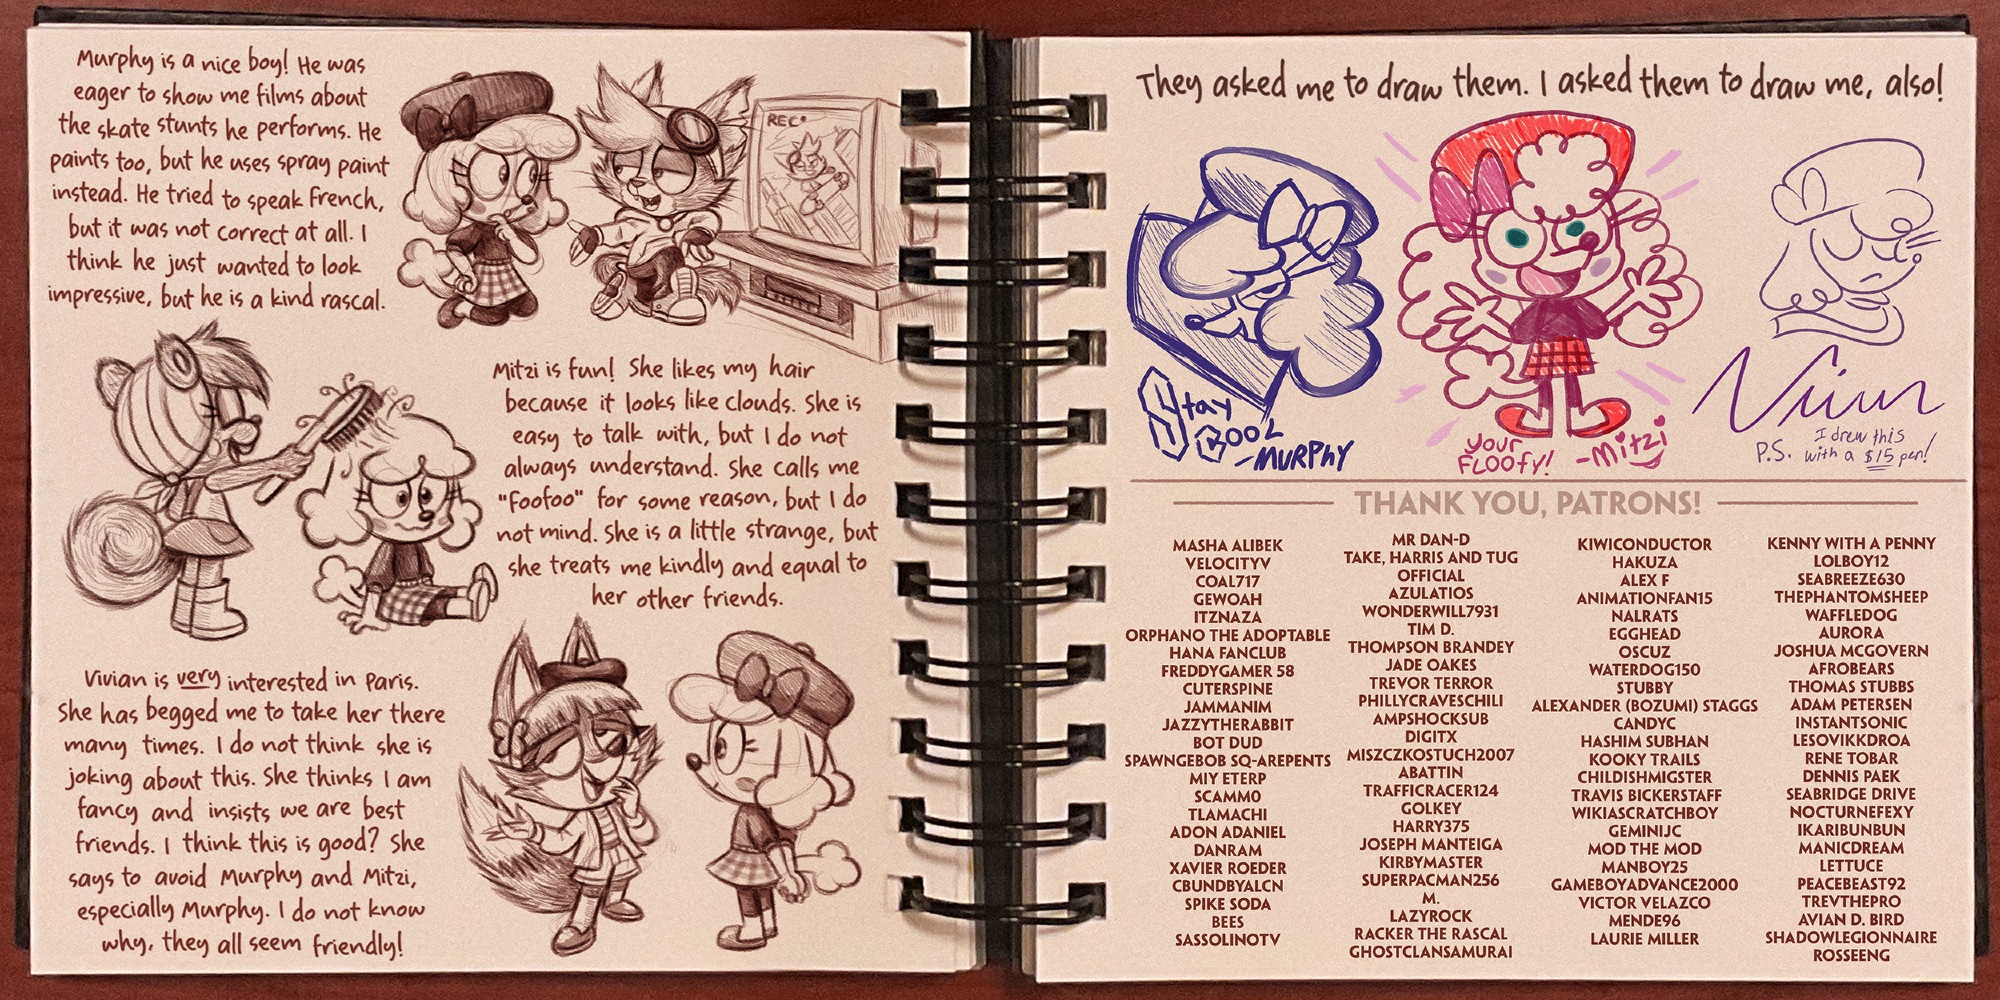 Murphy is a nice boy! He was
eager to show me films about
the skate stunts he performs. He
paints too, but he uses spray paint
instead. He tried to speak French,
but it was not correct at all. I
think he just wanted to look
impressive, but he is a kind rascal.
REC
Mitzi is fun! She likes my hair
because it looks like clouds. She is
easy to talk with, but I do not
always understand. She calls me
"Foofoo" for some reason, but I do
not mind. She is a little strange, but
she treats me kindly and equal to
her other friends.
Vivian is very interested in Paris.
She has begged me to take her there
many times. I do not think she is
joking about this. She thinks I am
fancy and insists we are best
friends. I think this is good? She
says to avoid Murphy and Mitzi,
especially Murphy. I do not know
why, they all seem friendly!
They asked me to draw them. I asked them to draw me, also!
Stay
Cool
-MURPHY
your
FLOOFY!
-Mitzi
P.S. I drew this
with a $15 pen!
THANK YOU, PATRONS!
MASHA ALIBEK
VELOCITYV
COAL717
GEWOAH
ITZNAZA
ORPHANO THE ADOPTABLE
HANA FANCLUB
FREDDYGAMER 58
CUTERSPINE
JAMMANIM
JAZZYTHERABBIT
BOT DUD
SPAWNGEBOB SQ-AREPENTS
MIY ETERP
SCAMM0
TLAMACHI
ADON ADANIEL
DANRAM
XAVIER ROEDER
CBUNDBYALCN
SPIKE SODA
BEES
SASSOLINOTV
MR DAN-D
TAKE, HARRIS AND TUG
OFFICIAL
AZULATIOS
WONDERWILL7931
TIM D.
THOMPSON BRANDEY
JADE OAKES
TREVOR TERROR
PHILLYCRAVESCHILI
AMPSHOCKSUB
DIGITX
MISZCZKOSTUCH2007
ABATTIN
TRAFFICRACER124
GOLKEY
HARRY375
JOSEPH MANTEIGA
KIRBYMASTER
SUPERPACMAN256
M.
LAZYROCK
RACKER THE RASCAL
GHOSTCLANSAMURAI
KIWICONDUCTOR
HAKUZA
ALEX F
ANIMATIONFAN15
NALRATS
EGGHEAD
OSCUZ
WATERDOG150
STUBBY
ALEXANDER (BOZUMI) STAGGS
CANDYC
HASHIM SUBHAN
KOOKY TRAILS
CHILDISHMIGSTER
TRAVIS BICKERSTAFF
WIKIASCRATCHBOY
GEMINIJC
MOD THE MOD
MANBOY25
GAMEBOYADVANCE2000
VICTOR VELAZCO
MENDE96
LAURIE MILLER
KENNY WITH A PENNY
LOLBOY12
SEABREEZE630
THEPHANTOMSHEEP
WAFFLEDOG
AURORA
JOSHUA MCGOVERN
AFROBEARS
THOMAS STUBBS
ADAM PETERSEN
INSTANTSONIC
LESOVIKKDROA
RENE TOBAR
DENNIS PAEK
SEABRIDGE DRIVE
NOCTURNEFEXY
IKARIBUNBUN
MANICDREAM
LETTUCE
PEACEBEAST92
TREVTHEPRO
AVIAN D. BIRD
SHADOWLEGIONNAIRE
ROSSEENG